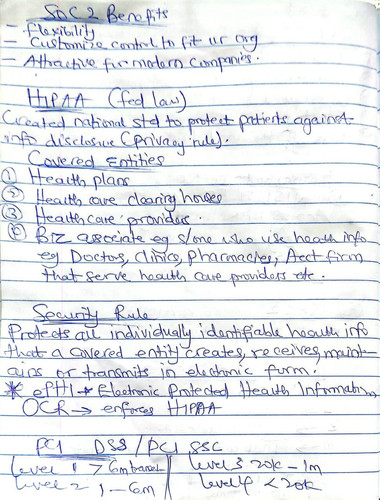 SOC 2 Benefits
- Flexibility
- Customize control to fit ur org
- Attractive for modern companies.
HIPAA (fed law)
Created national std to protect patients against
info disclosure (privacy rule).
Covered Entities
① Health plans
② Health care clearing houses
③ Healthcare providers.
④ Biz associate eg s/one who use health info
eg Doctors, Clinics, Pharmacies, Acct firm
that serve health care providers etc.
Security Rule
Protects all individually identifiable health info
that a covered entity creates, receives, maint-
ains or transmits in electronic form.
* ePHI → Electronic Protected Health Information
OCR → enforces HIPAA
PCI DSS / PCI SSC
Level 1 > 6m transact | Level 3 20k - 1m
Level 2 1 - 6m | Level 4 < 20k